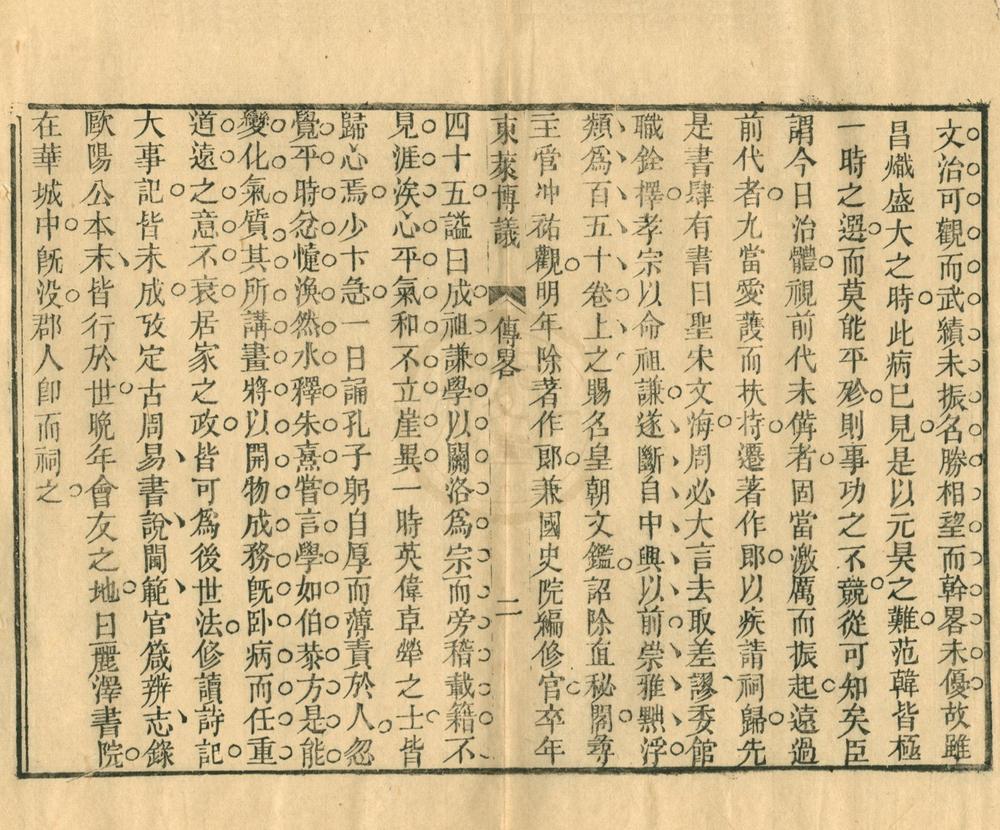 文治可觀而武績未振名勝相望而幹畧未優故雖
昌熾盛大之時此病已見是以元昊之難范韓皆極
一時之選而莫能平殄則事功之不競從可知矣臣
謂今日治體視前代未偹者固當激厲而振起遠過
前代者尤當愛護而扶持遷著作郎以疾請祠歸先
是書肆有書曰聖宋文海周必大言去取差謬委館
職銓擇孝宗以命祖謙遂斷自中興以前崇雅黜浮
類爲百五十卷上之賜名皇朝文鑑詔除直秘閣尋
主管冲祐觀明年除著作郎兼國史院編修官卒年
東萊博議 傳畧 二
四十五謚曰成祖謙學以關洛爲宗而旁稽載籍不
見涯涘心平氣和不立崖異一時英偉卓犖之士皆
歸心焉少卞急一日誦孔子躬自厚而薄責於人忽
覺平時忿懥渙然氷釋朱熹嘗言學如伯恭方是能
變化氣質其所講畫將以開物成務旣卧病而任重
道遠之意不衰居家之政皆可爲後世法修讀詩記
大事記皆未成攷定古周易書說閫範官箴辨志錄
歐陽公本末皆行於世晚年會友之地曰麗澤書院
在華城中旣没郡人卽而祠之